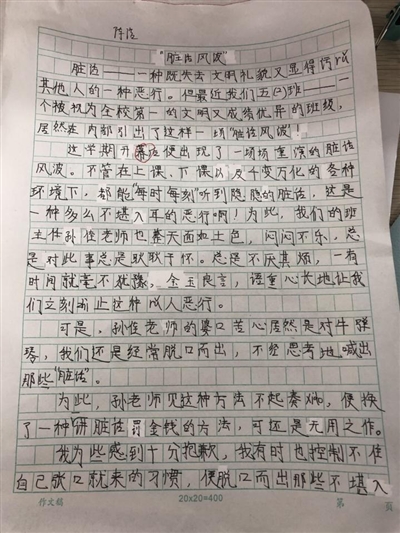 陈浩
“脏话风波”
脏话——一种既失去文明礼貌又显得污以
其他人的一种恶行。但最近我们五㈡班——一
个被视为全校第一的文明又成绩优异的班级，
居然在内部引出了这样一场“脏话风波”！
这学期开幕后便出现了一场场重演的脏话
风波。不管在上课、下课以及千变万化的各种
环境下，都能“每时每刻”听到隐隐的脏话，这是
一种多么不堪入耳的恶行啊！为此，我们的班
主任孙佳老师也整天面如土色，闷闷不乐，总
是对此事总是耿耿于怀。总是不厌其烦，一有
时间就毫不犹豫，金玉良言，语重心长地让我
们立刻渐止这种以人恶行。
可是，孙佳老师的婆口苦心居然是对牛弹
琴，我们还是经常脱口而出，不经思考地喊出
那些“脏话”。
为此，孙老师见这种方法不起奏效，便换
了一种“讲脏话罚金钱”的方法，可还是无用之作。
我为些感到十分抱歉，我有时也控制不住
自己张口就来的习惯，便脱口而出那些不堪入
作文稿
20×20=400
第 页